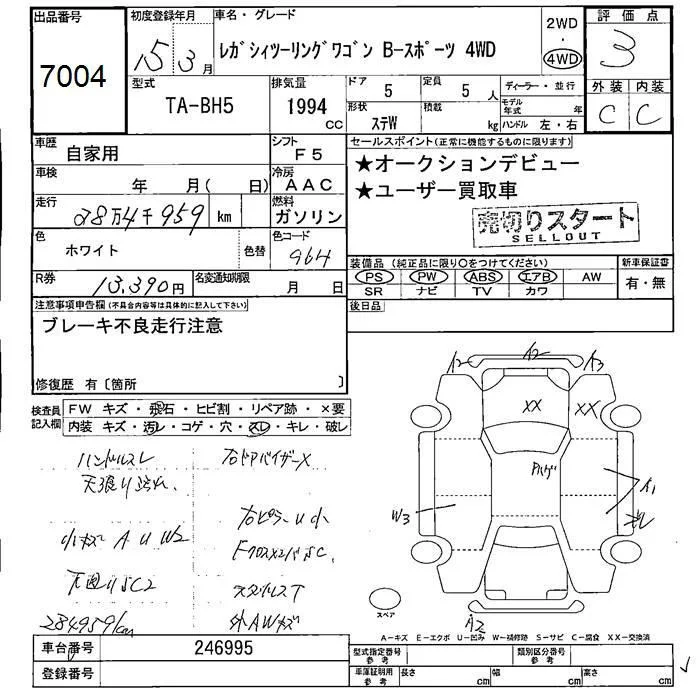 出品番号
7004
初度登録年月
15年3月
車名・グレード
レガシィツーリングワゴン B-スポーツ 4WD
2WD
・
4WD
評価点
3
型式
TA-BH5
排気量
1994
CC
ドア
5
定員
5人
形状
ステW
積載
kg
ディーラー・並行
モデル年式
年
ハンドル 左・右
外装 内装
C C
車歴
自家用
シフト
F5
車検
年 月( 日)
冷房
AAC
走行
28万4千959 km
燃料
ガソリン
色
ホワイト
色替
色コード
964
R券
13,390円
名変通知期限
月 日
セールスポイント(正常に機能するものに限ります)
★オークションデビュー
★ユーザー買取車
売切りスタート
SELLOUT
装備品(純正品に限り○をつけてください)
PS PW ABS エアB AW
SR ナビ TV カワ
新車保証書
有・無
後日品
注意事項申告欄(不具合内容等は具体的に記入して下さい)
ブレーキ不良走行注意
修復歴 有〔箇所 〕
検査員記入欄
FW キズ・飛石・ヒビ割・リペア跡・×要
内装 キズ・汚レ・コゲ・穴・スレ・キレ・破レ
ハンドルスレ
右ドアバイザーX
天張り汚れ
右ピラーU小
小キズ A U W2
F クロスメンバSC
下廻りSC2
スタッドレスT
284959km
外AWキズ
A2
XX
XX
ハゲ
W3
A1
A2
スペア
A-キズ E-エクボ U-凹み W-補修跡 S-サビ C-腐食 XX-交換済
車台番号
246995
登録番号
型式指定番号
参考
類別区分番号
参考
車庫証明用
参考
長さ cm
幅 cm
高さ cm